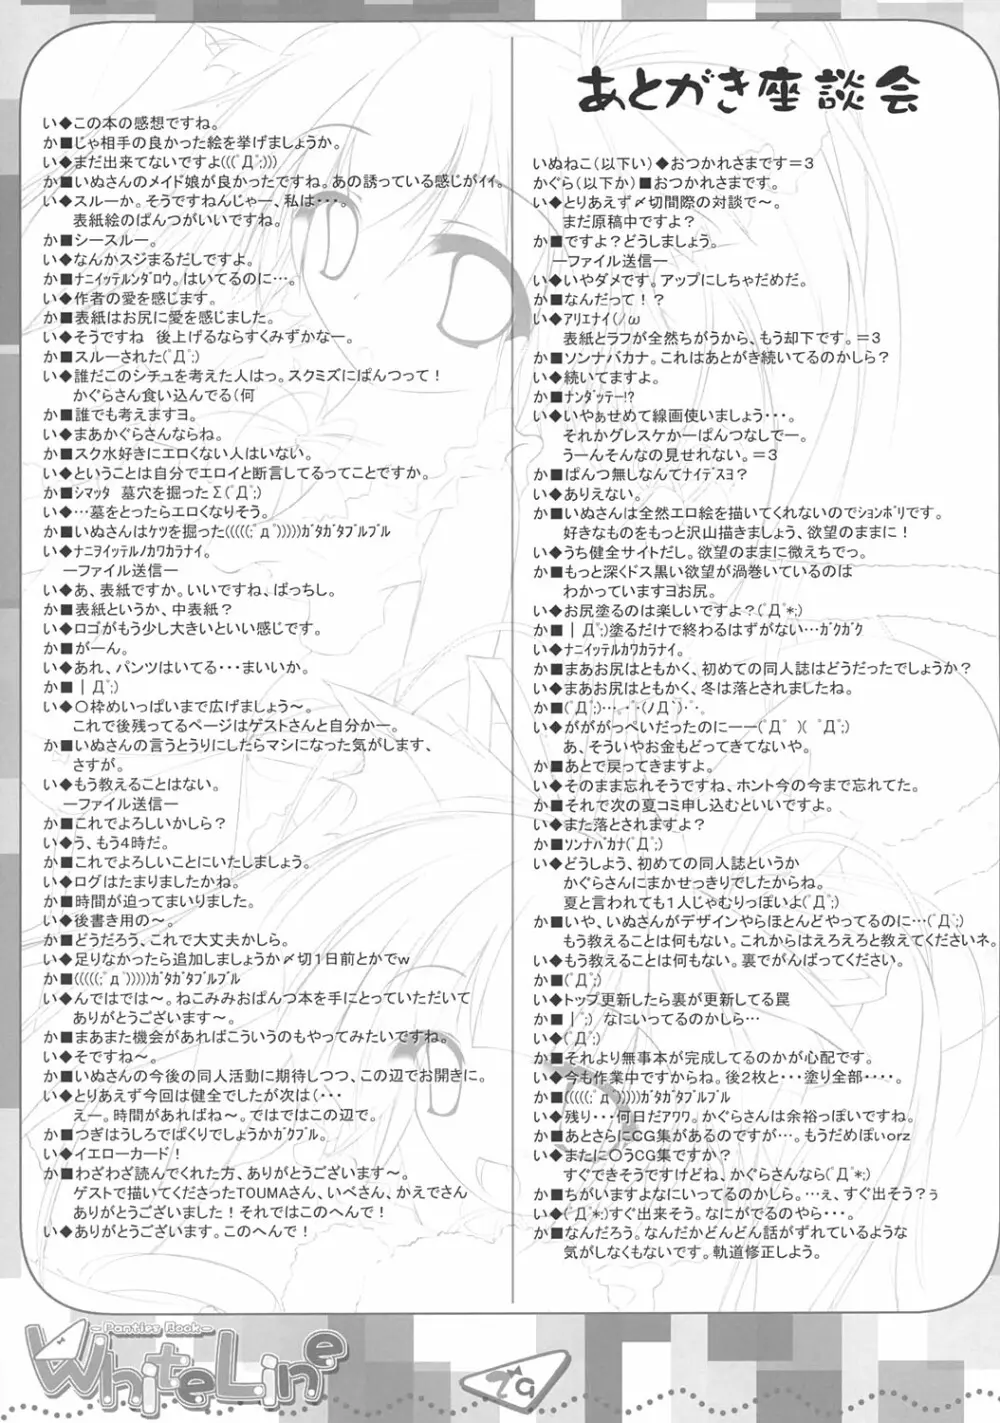 あとがき座談会
いぬねこ(以下い)◆おつかれさまです=3
かぐら(以下か)■おつかれさまです。
い◆とりあえず〆切間際の対談で〜。
まだ原稿中ですよ?
か■ですよ?どうしましょう。
―ファイル送信―
い◆いやダメです。アップにしちゃだめだ。
か■なんだって!?
い◆アリエナイ(ノω
表紙とラフが全然ちがうから、もう却下です。=3
か■ソンナバカナ。これはあとがき続いてるのかしら?
い◆続いてますよ。
か■ナンダッテー!?
い◆いやぁせめて線画使いましょう・・・。
それかグレスケかーぱんつなしでー。
うーんそんなの見せれない。=3
か■ぱんつ無しなんてナイデスヨ?
い◆ありえない。
か■いぬさんは全然エロ絵を描いてくれないのでションボリです。
好きなものをもっと沢山描きましょう、欲望のままに!
い◆うち健全サイトだし。欲望のままに微えちでっ。
か■もっと深くドス黒い欲望が渦巻いているのは
わかっていますヨお尻。
い◆お尻塗るのは楽しいですよ?(ﾟДﾟ*;)
か■|Дﾟ;)塗るだけで終わるはずがない…ガクガク
い◆ナニイッテルカワカラナイ。
か■まあお尻はともかく、初めての同人誌はどうだったでしょうか?
い◆まあお尻はともかく、冬は落とされましたね。
か■(ﾟДﾟ;)…｡･ﾟ･(ノД`)･ﾟ･。
い◆がががっぺいだったのに――(ﾟДﾟ )( ﾟДﾟ;)
あ、そういやお金もどってきてないや。
か■あとで戻ってきますよ。
い◆そのまま忘れそうですね、ホント今の今まで忘れてた。
か■それで次の夏コミ申し込むといいですよ。
い◆また落とされますよ?
か■ソンナバカナ(ﾟДﾟ;)
い◆どうしよう、初めての同人誌というか
かぐらさんにまかせっきりでしたからね。
夏と言われても1人じゃむりっぽいよ(ﾟДﾟ;)
か■いや、いぬさんがデザインやらほとんどやってるのに…(ﾟДﾟ;)
もう教えることは何もない。これからはえろえろと教えてくださいネ。
い◆もう教えることは何もない。裏でがんばってください。
か■(ﾟДﾟ;)
い◆トップ更新したら裏が更新してる罠
か■|ﾟ;) なにいってるのかしら…
い◆(ﾟДﾟ;)
か■それより無事本が完成してるのかが心配です。
い◆今も作業中ですからね。後2枚と・・・塗り全部・・・・。
か■(((((;ﾟдﾟ)))))ガタガタブルブル
い◆残り・・・何日だアワワ。かぐらさんは余裕っぽいですね。
か■あとさらにCG集があるのですが…。もうだめぽぃorz
い◆またに〇うCG集ですか?
すぐできそうですけどね、かぐらさんなら(ﾟДﾟ*;)
か■ちがいますよなにいってるのかしら。…ぇ、すぐ出そう?ぅ
い◆(ﾟДﾟ*;)すぐ出来そう。なにがでるのやら・・・。
か■なんだろう。なんだかどんどん話がずれているような
気がしなくもないです。軌道修正しよう。
い◆この本の感想ですね。
か■じゃ相手の良かった絵を挙げましょうか。
い◆まだ出来てないですよ(((ﾟДﾟ;)))
か■いぬさんのメイド娘が良かったですね。あの誘っている感じがイイ。
い◆スルーか。そうですねんじゃー、私は・・・。
表紙絵のぱんつがいいですね。
か■シースルー。
い◆なんかスジまるだしですよ。
か■ナニイッテルンダロウ。はいてるのに…。
い◆作者の愛を感じます。
か■表紙はお尻に愛を感じました。
い◆そうですね　後上げるならすくみずかなー。
か■スルーされた(ﾟДﾟ;)
い◆誰だこのシチュを考えた人はっ。スクミズにぱんつって!
かぐらさん食い込んでる(何
か■誰でも考えますヨ。
い◆まあかぐらさんならね。
か■スク水好きにエロくない人はいない。
い◆ということは自分でエロイと断言してるってことですか。
か■シマッタ　墓穴を掘ったΣ(ﾟДﾟ;)
い◆…墓をとったらエロくなりそう。
か■いぬさんはケツを掘った(((((;ﾟдﾟ)))))ガタガタブルブル
い◆ナニヲイッテルノカワカラナイ。
―ファイル送信―
い◆あ、表紙ですか。いいですね、ばっちし。
か■表紙というか、中表紙?
い◆ロゴがもう少し大きいといい感じです。
か■がーん。
い◆あれ、パンツはいてる・・・まいいか。
か■|Дﾟ;)
い◆〇枠めいっぱいまで広げましょう〜。
これで後残ってるページはゲストさんと自分かー。
か■いぬさんの言うとうりにしたらマシになった気がします、
さすが。
い◆もう教えることはない。
―ファイル送信―
か■これでよろしいかしら?
い◆う、もう4時だ。
か■これでよろしいことにいたしましょう。
い◆ログはたまりましたかね。
か■時間が迫ってまいりました。
い◆後書き用の〜。
か■どうだろう、これで大丈夫かしら。
い◆足りなかったら追加しましょうか〆切1日前とかでw
か■(((((;ﾟдﾟ)))))ガタガタブルブル
い◆んではでは〜。ねこみみおぱんつ本を手にとっていただいて
ありがとうございます〜。
か■まあまた機会があればこういうのもやってみたいですね。
い◆そですね〜。
か■いぬさんの今後の同人活動に期待しつつ、この辺でお開きに。
い◆とりあえず今回は健全でしたが次は(・・・
えー。時間があればね〜。ではではこの辺で。
か■つぎはうしろでぱくりでしょうかガクブル。
い◆イエローカード!
か■わざわざ読んでくれた方、ありがとうございます〜。
ゲストで描いてくださったTOUMAさん、いぺさん、かえでさん
ありがとうございました!それではこのへんで!
い◆ありがとうございます。このへんで!
- Panties Book -
WhiteLine
29